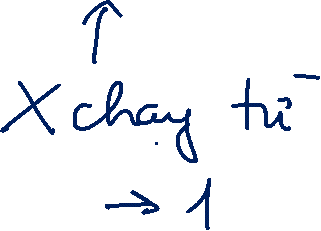 ↑
X chạy từ
→ 1